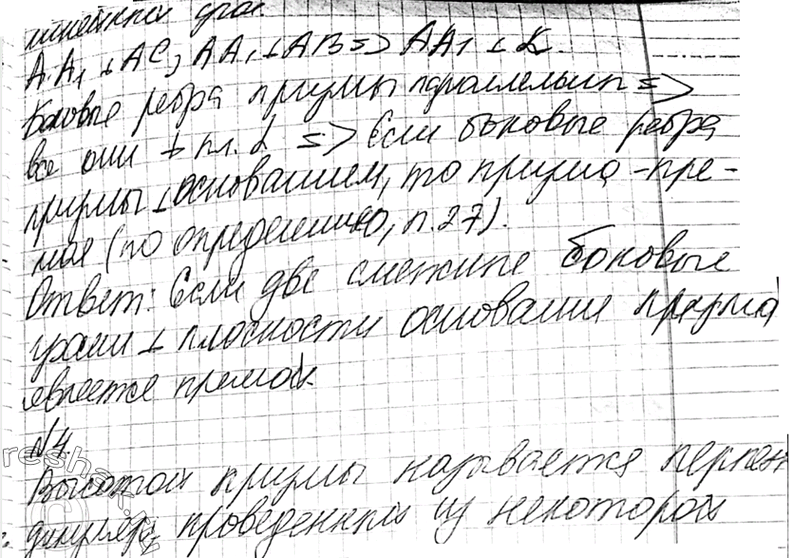 линейный
A.A₁ ⊥ AC, AA₁ ⊥ AB => AA₁ ⊥ α.
Боковые ребра призмы параллельны =>
все они ⊥ пл. α => Если боковые ребра
призмы ⊥ основанием, то призма - пре-
мая (по определению, п.27).
Ответ: Если две смежные боковые
грани ⊥ плоскости основания призма
является премой.
№4.
Высотой призмы называется перпен
дикуляр, проведенный из некоторой